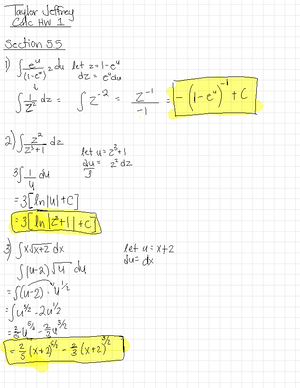 Taylor Jeffrey
Calc HW 1
Section 5.5
1) ∫ e^u/(1-e^u)^2 du let z = 1-e^u
dz = e^u du
↓
∫ 1/z^2 dz = ∫ z^-2 = z^-1/-1 = -(1-e^u)^-1 + C
2) ∫ z^2/(z^3+1) dz
let u = z^3+1
du/3 = z^2 dz
3∫ 1/u du
= 3[ln|u|+C]
= 3[ln|z^3+1|+C]
3) ∫ x√(x+2) dx let u = x+2
∫ (u-2)√u du du = dx
= ∫ (u-2) · u^1/2
= ∫ u^3/2 - 2u^1/2